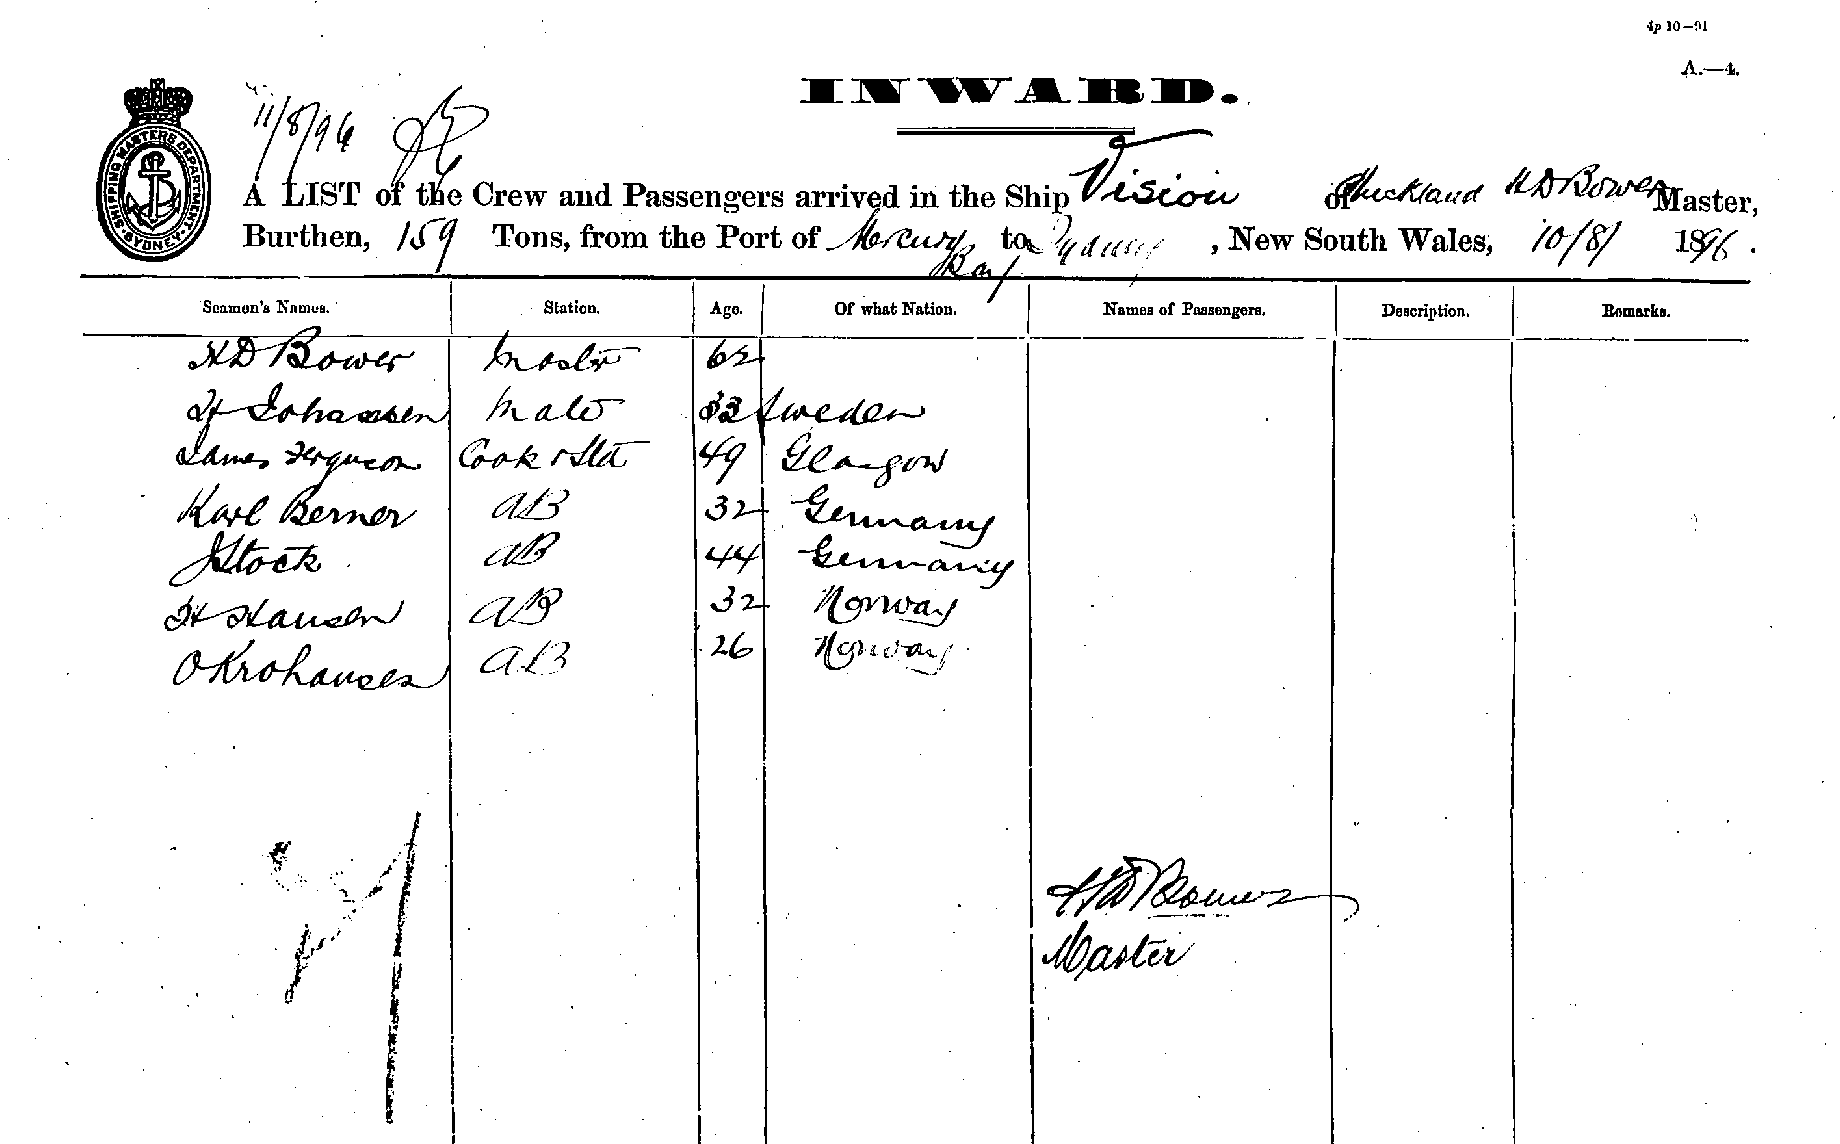 4p 10—91
A.—4.
INWARD.
11/8/96
SHIPPING MASTERS DEPARTMENT SYDNEY
A LIST of the Crew and Passengers arrived in the Ship Vision of Auckland H D Bower Master,
Burthen, 159 Tons, from the Port of Mercury Bay to Sydney, New South Wales, 10/8/ 1896.
Seamen's Names. Station. Age. Of what Nation. Names of Passengers. Description. Remarks.
H D Bower Master 62
H Johansen Mate 33 Sweden
James Ferguson Cook & Std 49 Glasgow
Karl Berner AB 32 Germany
J Stock AB 44 Germany
H Hansen AB 32 Norway
O Krohansen AB 26 Norway
H D Bower
Master